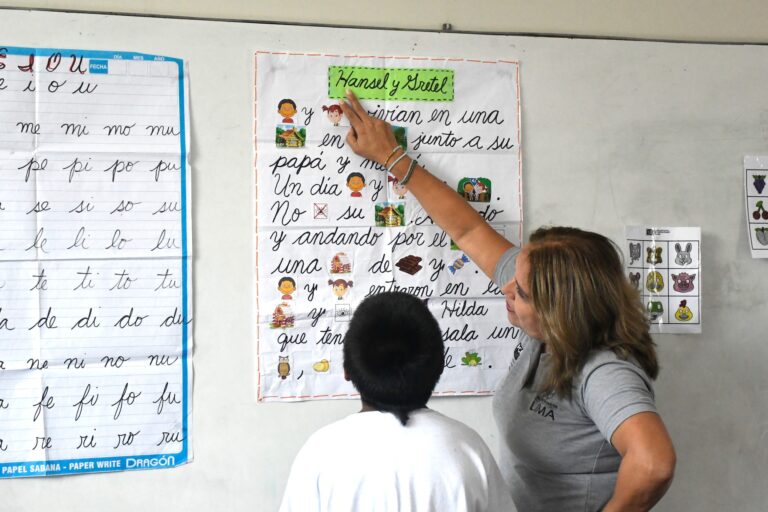 E I O U
DÍA MES AÑO
FECHA
e i o u
me mi mo mu
pe pi po pu
se si so su
le li lo lu
te ti to tu
de di do du
ne ni no nu
fe fi fo fu
re ri ro ru
PAPEL SABANA - PAPER WRITE DRAGÓN
Hansel y Gretel
y vivían en una
en junto a su
papá y
Un día y
No su
y andando por el
una de y
y entraron en la
y Hilda
que sala un
,
LIMA